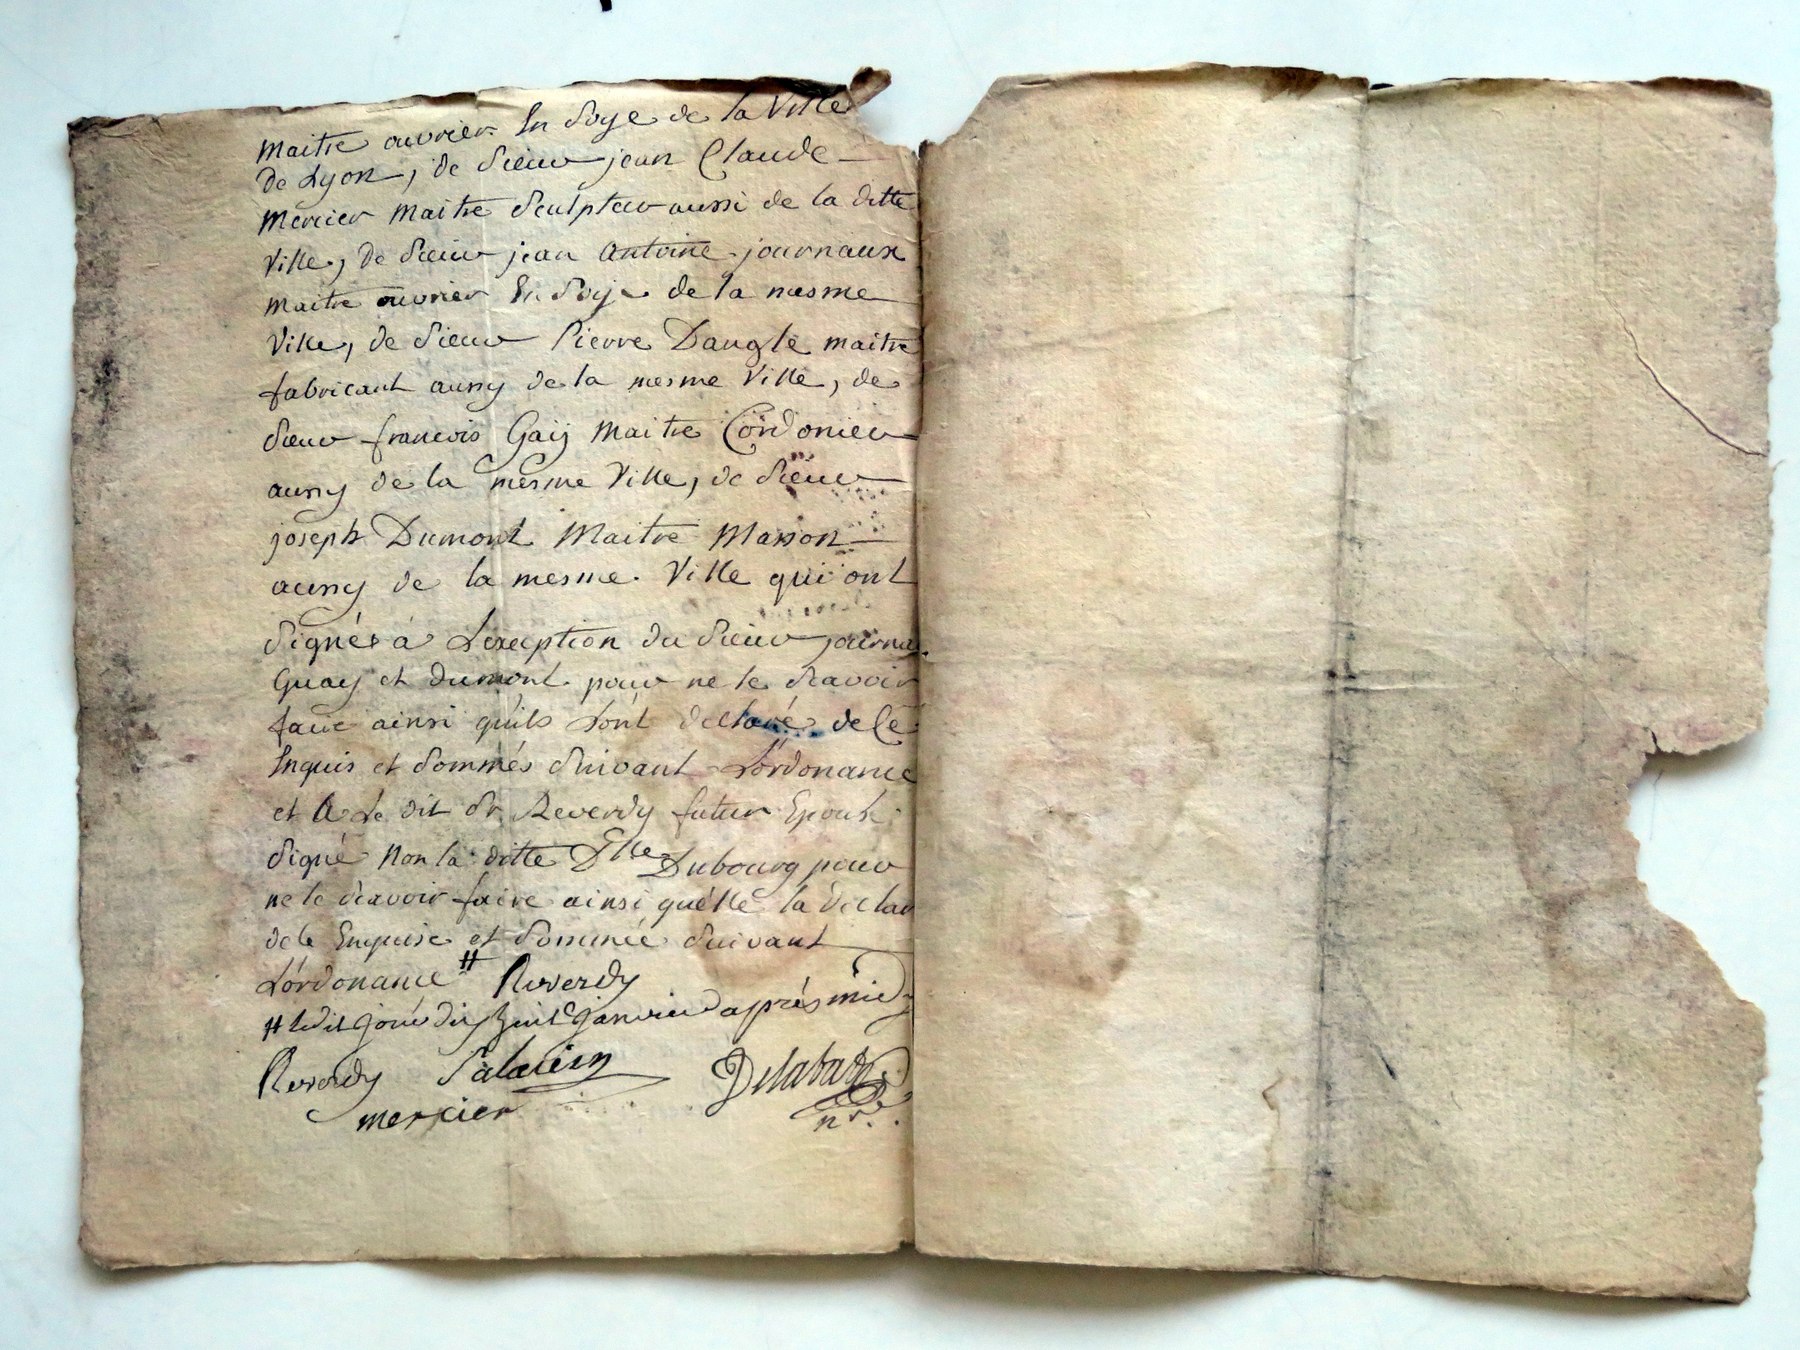 Maitre ouvrier En Soye de la Ville
De Lyon, de Sieur jean Claude
Mercier Maitre Sculpteur aussi de la ditte
Ville, de Sieur jean Antoine journaux
Maitre ouvrier En Soye de la mesme
Ville, de Sieur Pierre Dangle maitre
fabricant aussy de la mesme Ville, de
Sieur francois Gaÿ Maitre Cordonier
aussy de la mesme Ville, de Sieur
joseph Dumont Maitre Masson
aussy de la mesme Ville qui ont
Signés à L'exeption du Sieur journa
Guay et Dumont pour ne le Scavoir
faire ainsi qu'ils L'ont declaré de Ce
Enquis et Sommés Suivant L'ordonance
et A Le dit Sr Reverdy futur Epoux
Signé Non la ditte Dlle Dubourg pour
ne le Scavoir faire ainsi qu'elle la déclar
de Ce Enquise et Sommée Suivant
L'ordonance # Reverdy
# Ledit jour dix huit janvier après midy
Reverdy Delabat
mercier nre.